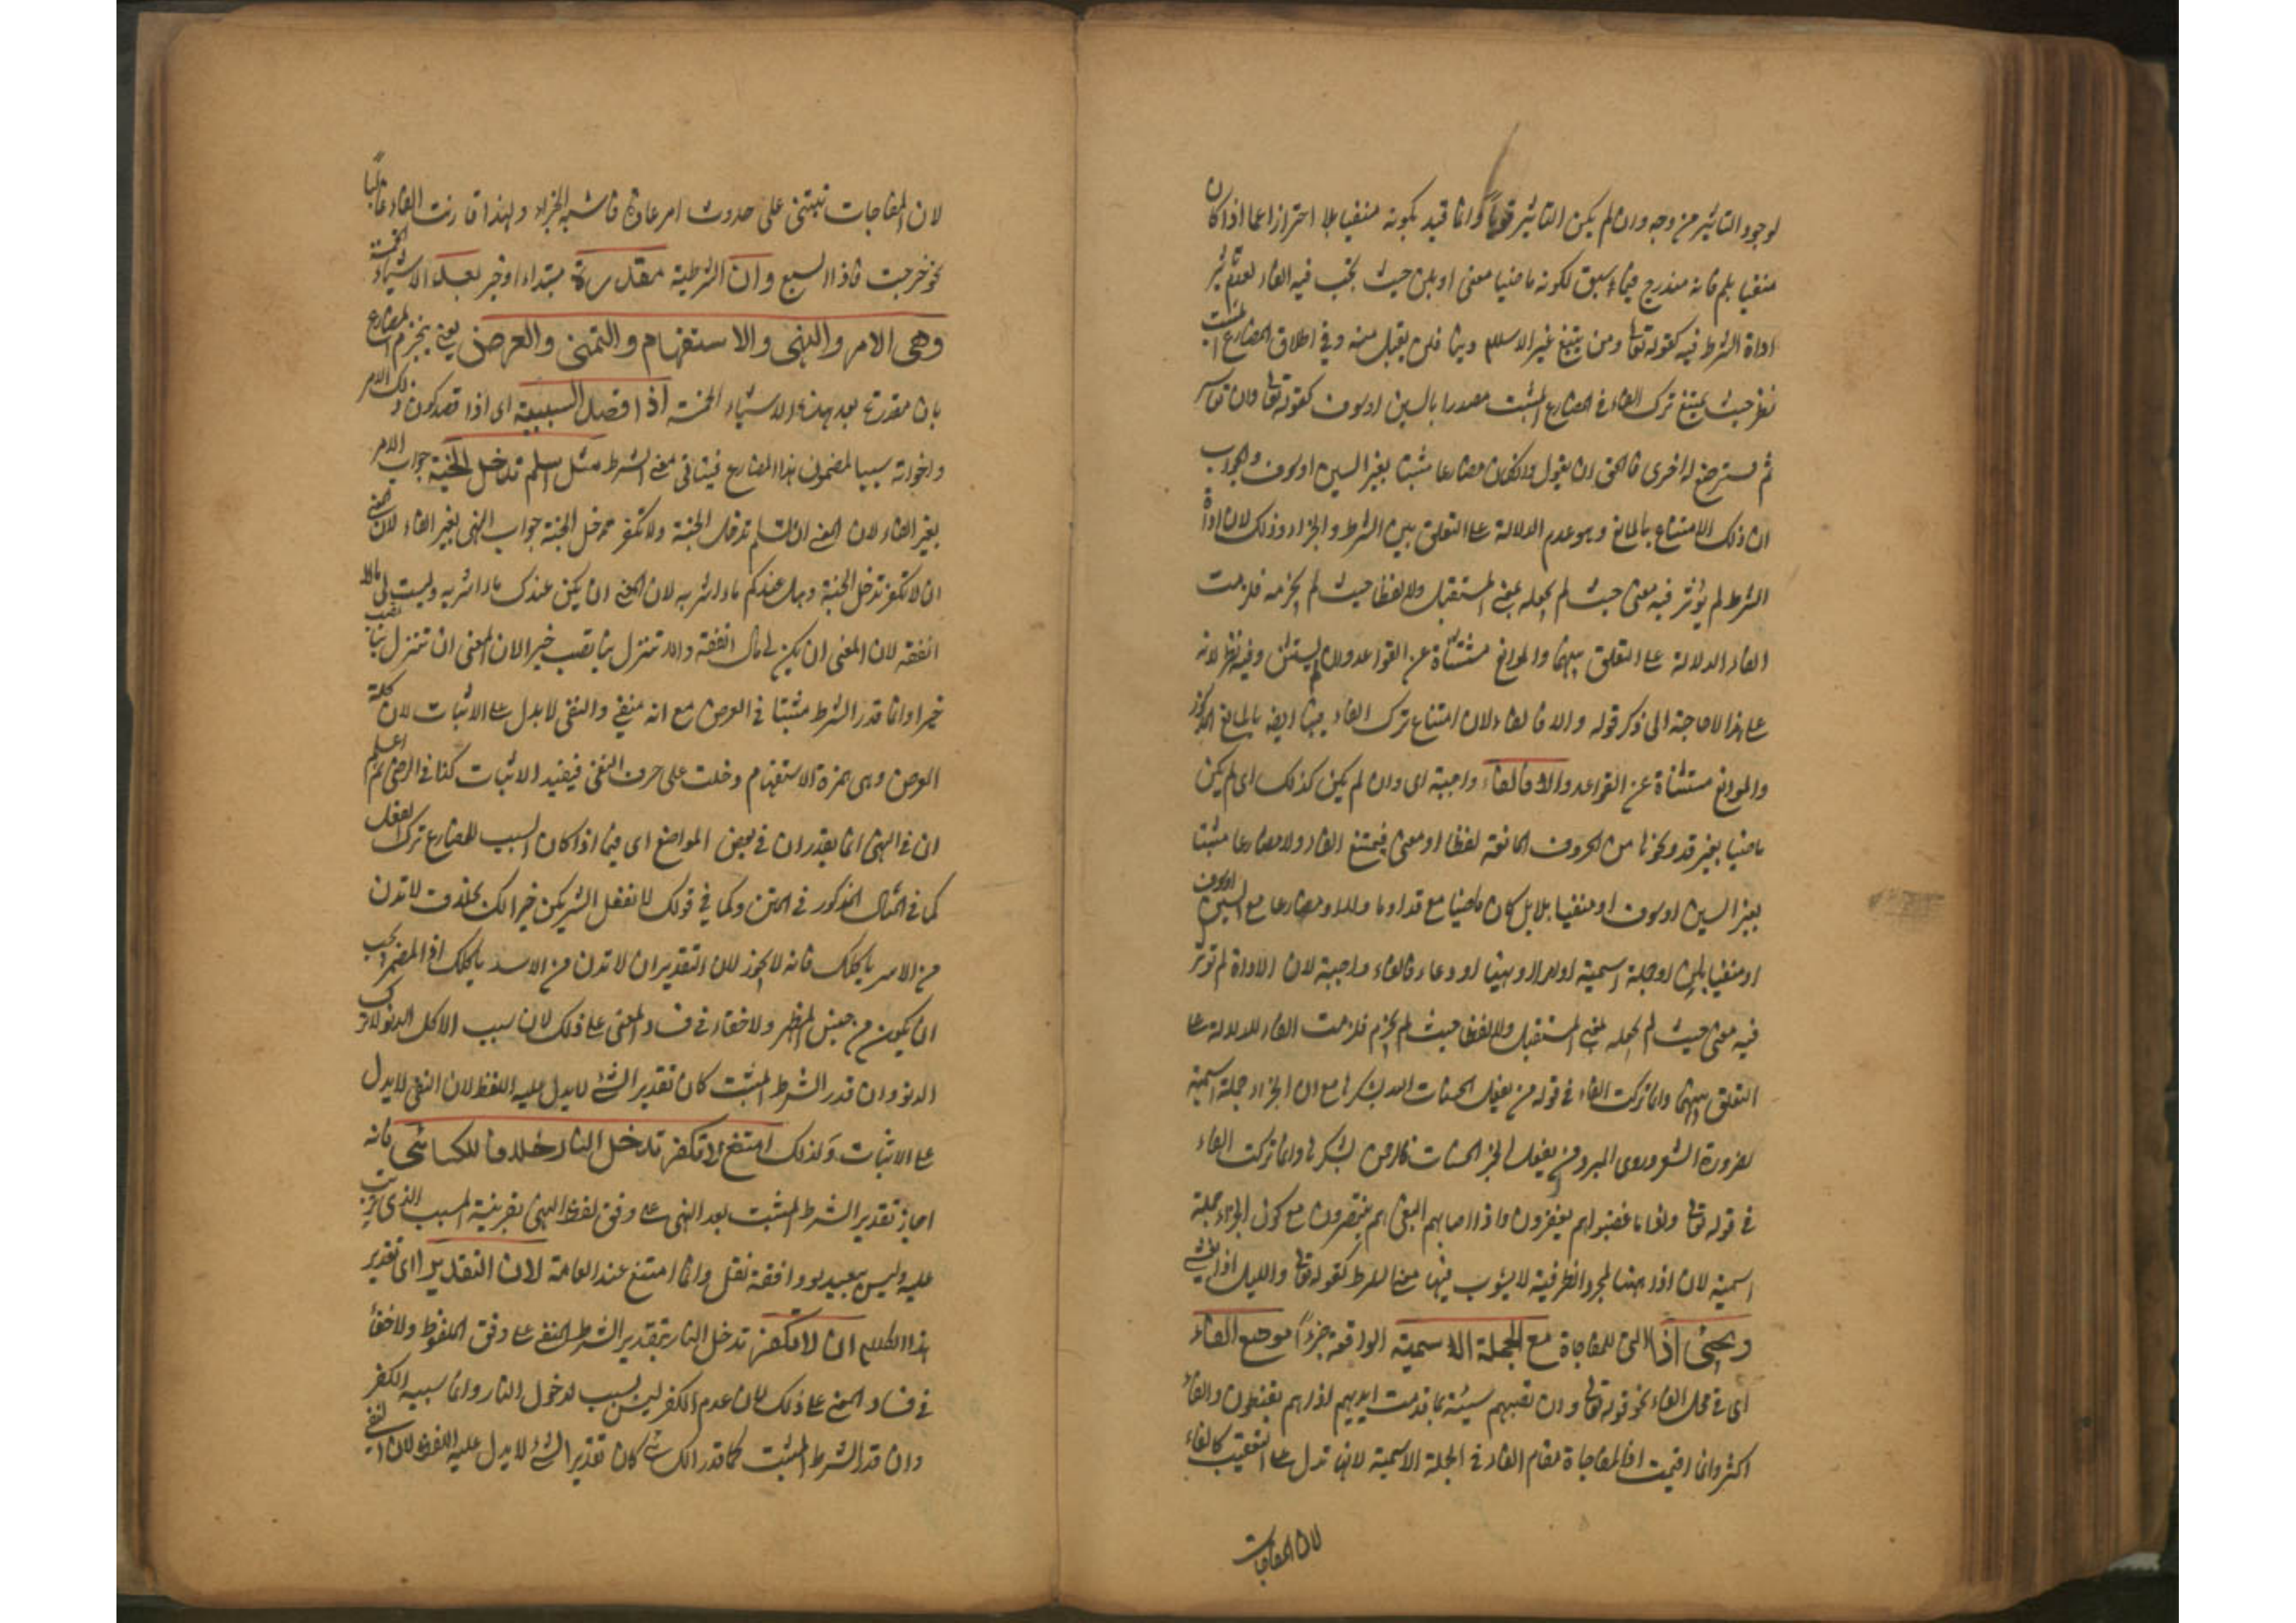 لوجود التاثير من وجه وان لم يكن التاثير قويا وانما قيد بكونه منفيا بلا احترازا عما اذا كان
منفيا بلم فانه مندرج فيما سبق لكونه ماضيا معنى او بلن حيث يجب فيه الفاء لعدم تاثير
اداة الشرط فيه كقوله تعالى ومن يبتغ غير الاسلام دينا فلن يقبل منه وفى اطلاق المضارع المثبت
نظر حيث يمتنع ترك الفاء فى المضارع المثبت مصدرا بالسين او سوف كقوله تعالى وان تعاسر
تم فسترضع له اخرى فالحق ان يقول وان كان مضارعا مثبتا بغير السين او سوف والجواب
ان ذلك الامتناع بالمانع وهو عدم الدلالة على التعلق بين الشرط والجزاء وذلك لان اداة
الشرط لم يؤثر فيه معنى حيث لم يجعله بمعنى المستقبل ولا لفظا حيث لم يجزمه فلزمت
الفاء الدلالة على التعلق بينهما والموانع مستثناة عن القواعد وان لم يستثن وفيه نظر لانه
على هذا لا حاجة الى ذكر قوله والا فالفاء لان امتناع ترك الفاء فيها ايضا بالمانع المذكور
والموانع مستثناة عن القواعد والا فالفاء واجبة اى وان لم يكن كذلك اى لم يكن
ماضيا بغير قد ونحوها من الحروف المانعة لفظا او معنى فيمتنع الفاء ولا مضارعا مثبتا
بغير السين او سوف او منفيا بلا بل كان ماضيا مع قد او ما او لا او مضارعا مع السين او سوف
او منفيا بلن او جملة اسمية او امرا او نهيا او دعاء فالفاء واجبة لان الاداة لم تؤثر
فيه معنى حيث لم يجعله بمعنى المستقبل ولا لفظا حيث لم يجزم فلزمت الفاء للدلالة على
التعلق بينهما وانما تركت الفاء فى قوله من يفعل الحسنات الله يشكرها مع ان الجزاء جملة اسمية
لضرورة الشعر وروى المبرد من يفعل الخير الحسنات فالرحمن يشكرها وانما تركت الفاء
فى قوله تعالى واذا ما غضبوا هم يغفرون واذا اصابهم البغى هم ينتصرون مع كون الجزاء جملة
اسمية لان اذا ههنا لمجرد الظرفية لا يشوب فيها معنى الشرط كقوله تعالى والليل اذا يغشى
ويجئ اذا التى للمفاجاة مع الجملة الاسمية الواقعة جزاء موضع الفاء
اى فى محل الفاء نحو قوله تعالى وان تصبهم سيئة بما قدمت ايديهم اذا هم يقنطون والفاء
اكثر وانما اقيمت اذا المفاجاة مقام الفاء فى الجملة الاسمية لانها تدل على التعقيب كالفاء
لان المفاجات
لان المفاجات تبتنى على حدوث امر عادة فاشبه الجزاء ولهذا قارنت الفاء غالبا
نحو خرجت فاذا السبع وان الشرطية مقدرة مبتداء وخبر بعد الاشياء الخمسة
وهى الامر والنهى والاستفهام والتمنى والعرض يعنى ينجزم المضارع
بان مقدرة بعد هذه الاشياء الخمسة اذا قصد السببية اى اذا قصد كون ذلك الامر
واخواته سببيا لمضمون هذا المضارع فيتاتى معنى الشرط مثل اسلم تدخل الجنة جواب الامر
بغير الفاء لان المعنى ان تسلم تدخل الجنة ولا تكفر تدخل الجنة جواب النهى بغير الفاء لان معنى
ان لا تكفر تدخل الجنة وهل عندكم ماء اشربه لان المعنى ان يكن عندك ماء اشربه وليت لى مالا
انفقه لان المعنى ان يكن لى مال انفقه والا تنزل بنا تصب خيرا لان المعنى ان تنزل بنا تصب
خيرا وانما قدر الشرط مثبتا فى العرض مع انه منفى والنفى لا يدل على الاثبات لان كلمة
العرض وهى همزة الاستفهام دخلت على حرف النفى فيفيد الاثبات كذا فى الرضى ثم اعلم
ان فى النهى انما يقدر ان فى بعض المواضع اى فيما اذا كان السبب للمضارع ترك الفعل
كما فى المثال المذكور فى المتن وكما فى قولك لا تفعل الشر يكن خيرا لك بخلاف لا تدن
من الاسد ياكلك فانه لا يجوز لان التقدير ان لا تدن من الاسد ياكلك اذ المضمر يجب
ان يكون من جنس المظهر ولا خفاء فى فساد المعنى على ذلك لان سبب الاكل الدنو لا ترك
الدنو وان قدر الشرط المثبت كان تقدير الشئ لا يدل عليه اللفظ لان النفى لا يدل
على الاثبات ولذلك امتنع لا تكفر تدخل النار خلافا للكسائى فانه
اجاز تقدير الشرط المثبت بعد النهى على وفق لفظ النهى بقرينة المسبب الذى يترتب
عليه وليس ببعيد لو وافقه نقل وانما امتنع عند العامة لان التقدير اى تقدير
هذا الكلام ان لا تكفر تدخل النار بتقدير الشرط المنفى على وفق الملفوظ ولا خفاء
فى فساد المعنى على ذلك لان عدم الكفر ليس بسبب لدخول النار وانما سببه الكفر
وان قدر الشرط المثبت كما قدر الكسائى كان تقدير الشئ لا يدل عليه اللفظ لان النفى